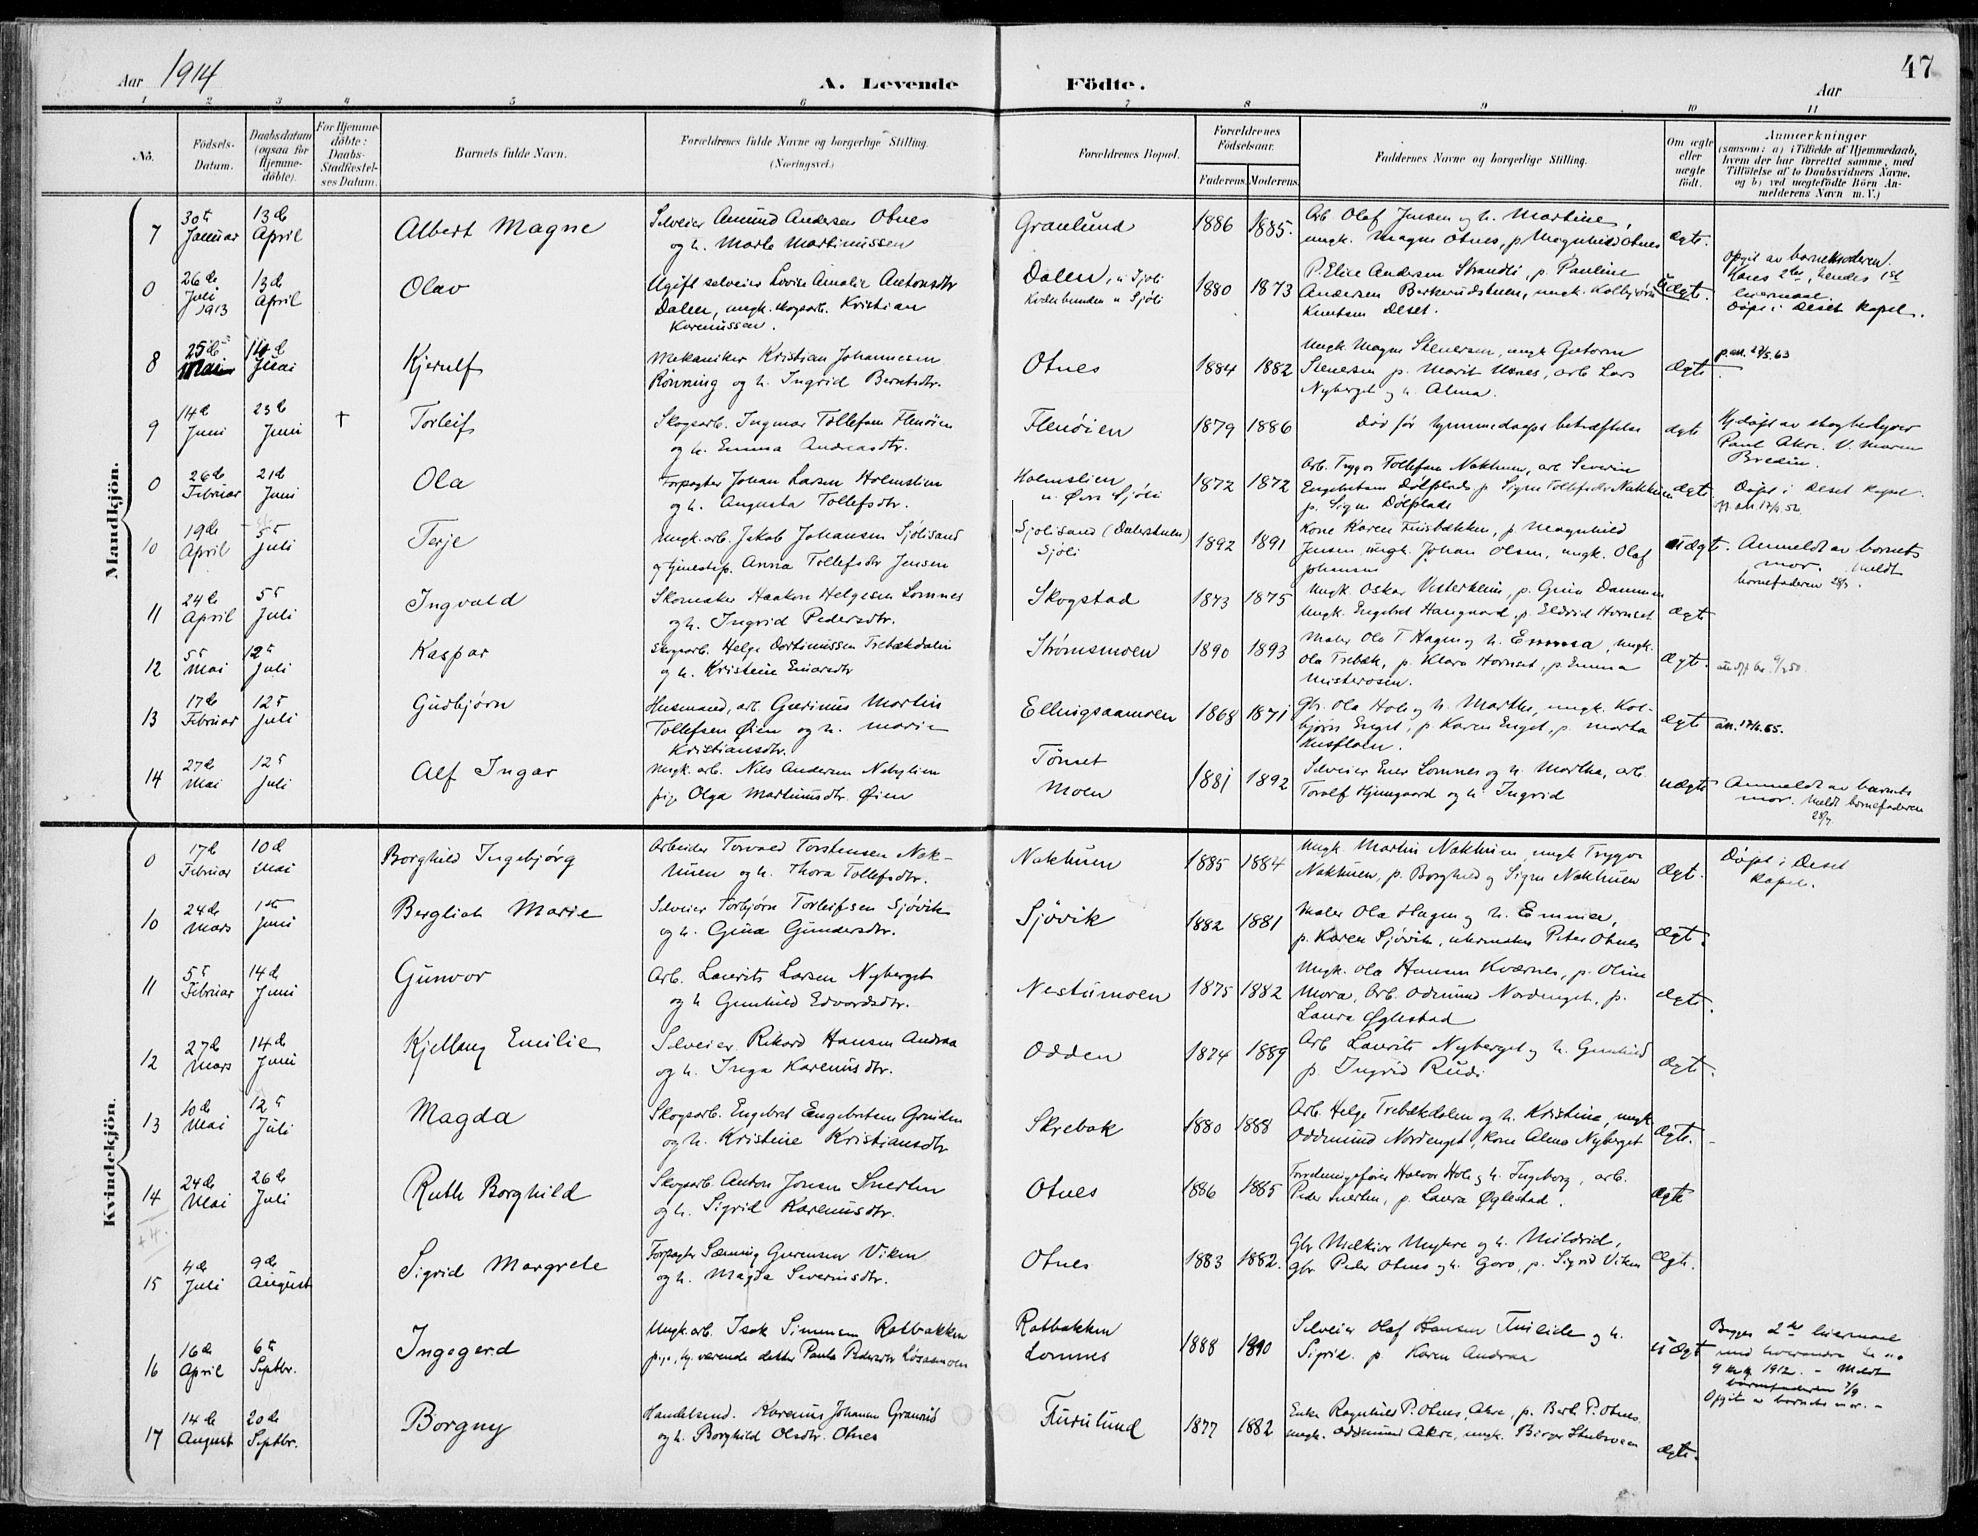 Aar 1914
A. Levende Födte.
Aar
47
1 2 3 4 5 6 7 8 9 10 11
No.
Födsels-Datum.
Daabsdatum (ogsaa for Hjemme-döbte).
For Hjemme-döbte: Daabs-Stadfæstel-ses Datum.
Barnets fulde Navn.
Forældrenes fulde Navne og borgerlige Stilling. (Næringsvei.)
Forældrenes Bopæl.
Forældrenes Födselsaar.
Faderens. Moderens.
Faddernes Navne og borgerlige Stilling.
Om ægte eller uægte födt.
Anmærkninger
(saasom: a) i Tilfælde af Hjemmedaab, hvem der har forrettet samme, med Tilföielse af to Daabsvidners Navne, og b) ved uægtefödte Börn An-melderens Navn m. V.)
Mandkjön.
7 30te Januar 13de April Albert Magne Selveier Amund Andersen Otnes og h. Marte Martinussen Granlund 1886 1885. Arb. Olaf Jensen og h. Martine, ungk. Magne Otnes, p. Magnhild Otnes ægte.
0 26de Juli 1913 13de April Olav Ugift selveier Lovise Amalie Antonsdtr Dalen, ungk. skogsarb. Kristian Karenussen. Dalen, u Sjøli 1880 1873 P. Elise Andersen Strandli, p. Pauline Andersen Berkerudstuen, ungk. Kolbjørn Knutsen Deset. Uægte. Opgit av barnemoderen. Hans 2det, hendes 1st leiermaal. Døpt i Deset kapel.
8 25de Mai Kjerulf Mekaniker Kristian Johannesen Rønning og h. Ingrid Berntsdtr. Otnes 1884 1882 Ungk. Magne Stenersen, ungk. Gutorm Stenersen p. Marit Utnes, arb. Lars Nyberget og h. Alma. Ægte
9 14de Juni 23de Juni † Torleif Skogsarb. Ingmar Tollefsen Flenøien og h. Emma Andreasdtr. Flenøien 1879 1886 Død før hjemmedaaps bekræftelse ægte Hj.døpt av skogbetyder Paul Akre. V. Maren Bredin.
0 26de Februar 21de Juni Ola Forpagter Johan Larsen Holmslien og h. Augusta Tollefsdtr. Holmslien u. Øvre Sjøli 1872 1872 Arb. Trygve Tollefsen Nakhuen, arb. Severin Engebretsen Dølplads p. Signe Tollefsdtr Nakhuen p. Signe Dølplads ægte. Døpt i Deset kapel.
10 19de April 5te Juli Terje Ungk. arb. Jakob Johansen Sjølisand og tjenestep. Anna Tollefsdtr Jensen Sjølisand (Dalerstuen) Sjøli 1892 1891 Kone Karen Furubækken, p. Magnhild Jensen, ungk. Johan Olsen, ungk. Olaf Johansen uægte. Anmeldt av barnets mor. Meldt barnefaderen 28/7.
11 24de April 5te Juli Ingvald Skomaker Haakon Helgesen Lomnes og h. Ingrid Pedersdtr. Skogstad 1873 1875 Ungk. Oskar Vesterheim, p. Gina Dammen Ungk. Engebret Haugaard, p. Eldrid Hornset ægte
12 5te Mai 12te Juli Kaspar Skogsarb. Helge Trebækdalen og h. Kristine Einarsdtr Strømsmoen 1890 1893 Maler Ola T Hagen og h. Emma, ungk. Ola Trebæk, p. Klara Hornset, p. Emma Misterosen. Ægte.
13 17de Februar 12te Juli Gudbjørn Husmand, arb. Gurinus Martin Tollefsen Øien og h. Marie Kristiansdtr. Ellingsaamoen 1868 1871 Gbr. Ola Hole og h. Marthe, ungk. Kolbjørn Enget, p. Karen Enget, p. Marta Husfloen. Ægte att. 17/6.55.
14 27de Mai 12te Juli Alf Ingar Ungk. arb. Nils Andersen Nabylien pige Olga Martinusdtr. Øien Tønset Moen 1881 1892 Selveier Emer Lomnes og h. Martha, arb. Toralf Hjemgaard og h. Ingrid uægte Anmeldt av barnets mor. Meldt barnefaderen 28/7.
Kvindekjön.
0 17de Februar 10de Mai Borghild Ingebjørg Arbeider Torvald Torstensen Nakhuen og h. Thora Tollefsdtr. Nakhuen 1885 1884 Ungk. Martin Nakhuen, ungk Trygve Nakhuen, p. Borghild og Signe Nakhuen Ægte. Døpt i Deset kapel.
10 24de Mars 1ste Juni Bergliot Marie Selveier Torbjørn Torleifsen Sjøvik og h. Gina Gundersdtr. Sjøvik 1882 1881 Maler Ola Hagen og h. Emma, p. Karen Sjøvik, uhrmaker Peter Otnes Ægte.
11 5te Februar 14de Juni Gunvor Arb. Laurits Larsen Nyberget og h Gunhild Edvardsdtr. Nestumoen 1875 1882 Ungk. Ola Hansen Kværnes, p. Oline Mora, Arb. Odmund Nordenget, p. Laura Øglestad ægte.
12 27de Mars 14de Juni Kjellaug Emilie Selveier Rikard Hansen Andraa og h. Inga Karenusdtr. Odden 1874 1889 Arb Laurits Nyberget og h. Gunhild p. Ingrid Rudi Ægte.
13 10de Mai 12te Juli Magda Skogsarb. Engebret Engebretsen Granlien og h. Kristine Kristiansdtr Skrebak 1880 1888 Arb. Helge Trebækdalen og h. Kristine, ungk Oddmund Nordenget, kone Alma Nyberget Ægte. -
14 24de Mai 26de Juli Ruth Borghild Skogsarb. Anton Jonsen Snerten og h. Sigrid Karenusdtr. Otnes 1886 1885 Forretningsfører Halvor Hole og h. Ingeborg, arb. Peder Snerten, p. Laura Øglestad. Ægte
15 4de Juli 9de August Sigrid Margrete Forpagter Sæming Gurensen Viken og h. Magda Severinsdtr. Otnes 1883 1882. Gbr Melkior Mykre og h. Mildrid, Gbr. Peder Otnes og h. Goro, p. Sigrid Viken Ægte.
16 16de April 6te Septbr. Ingegerd Ungk. arb. Isak Simensen Ratbakken pige, hj. værende datter Paula Pedersdtr Løsaamoen Ratbakken Lomnes 1888 1890 Selveier Olaf Hansen Furulide og h. Sigrid. p. Karen Andraa uægte Begges 2det leiermaal med hverandre. 1912. - Meldt barnefaderen 7/9 Opgit av barnets mor. -
17 14de August 20de Septbr. Borgny Handelsmd. Karenus Johansen Granrud og h. Borghild Olsdtr. Otnes Furulund 1877 1882 Enke Ragnhild P. Otnes, Akre, p. Berte P. Otnes ungk. Oddmund Akre, ungk. Birger Stubsveen Ægte.